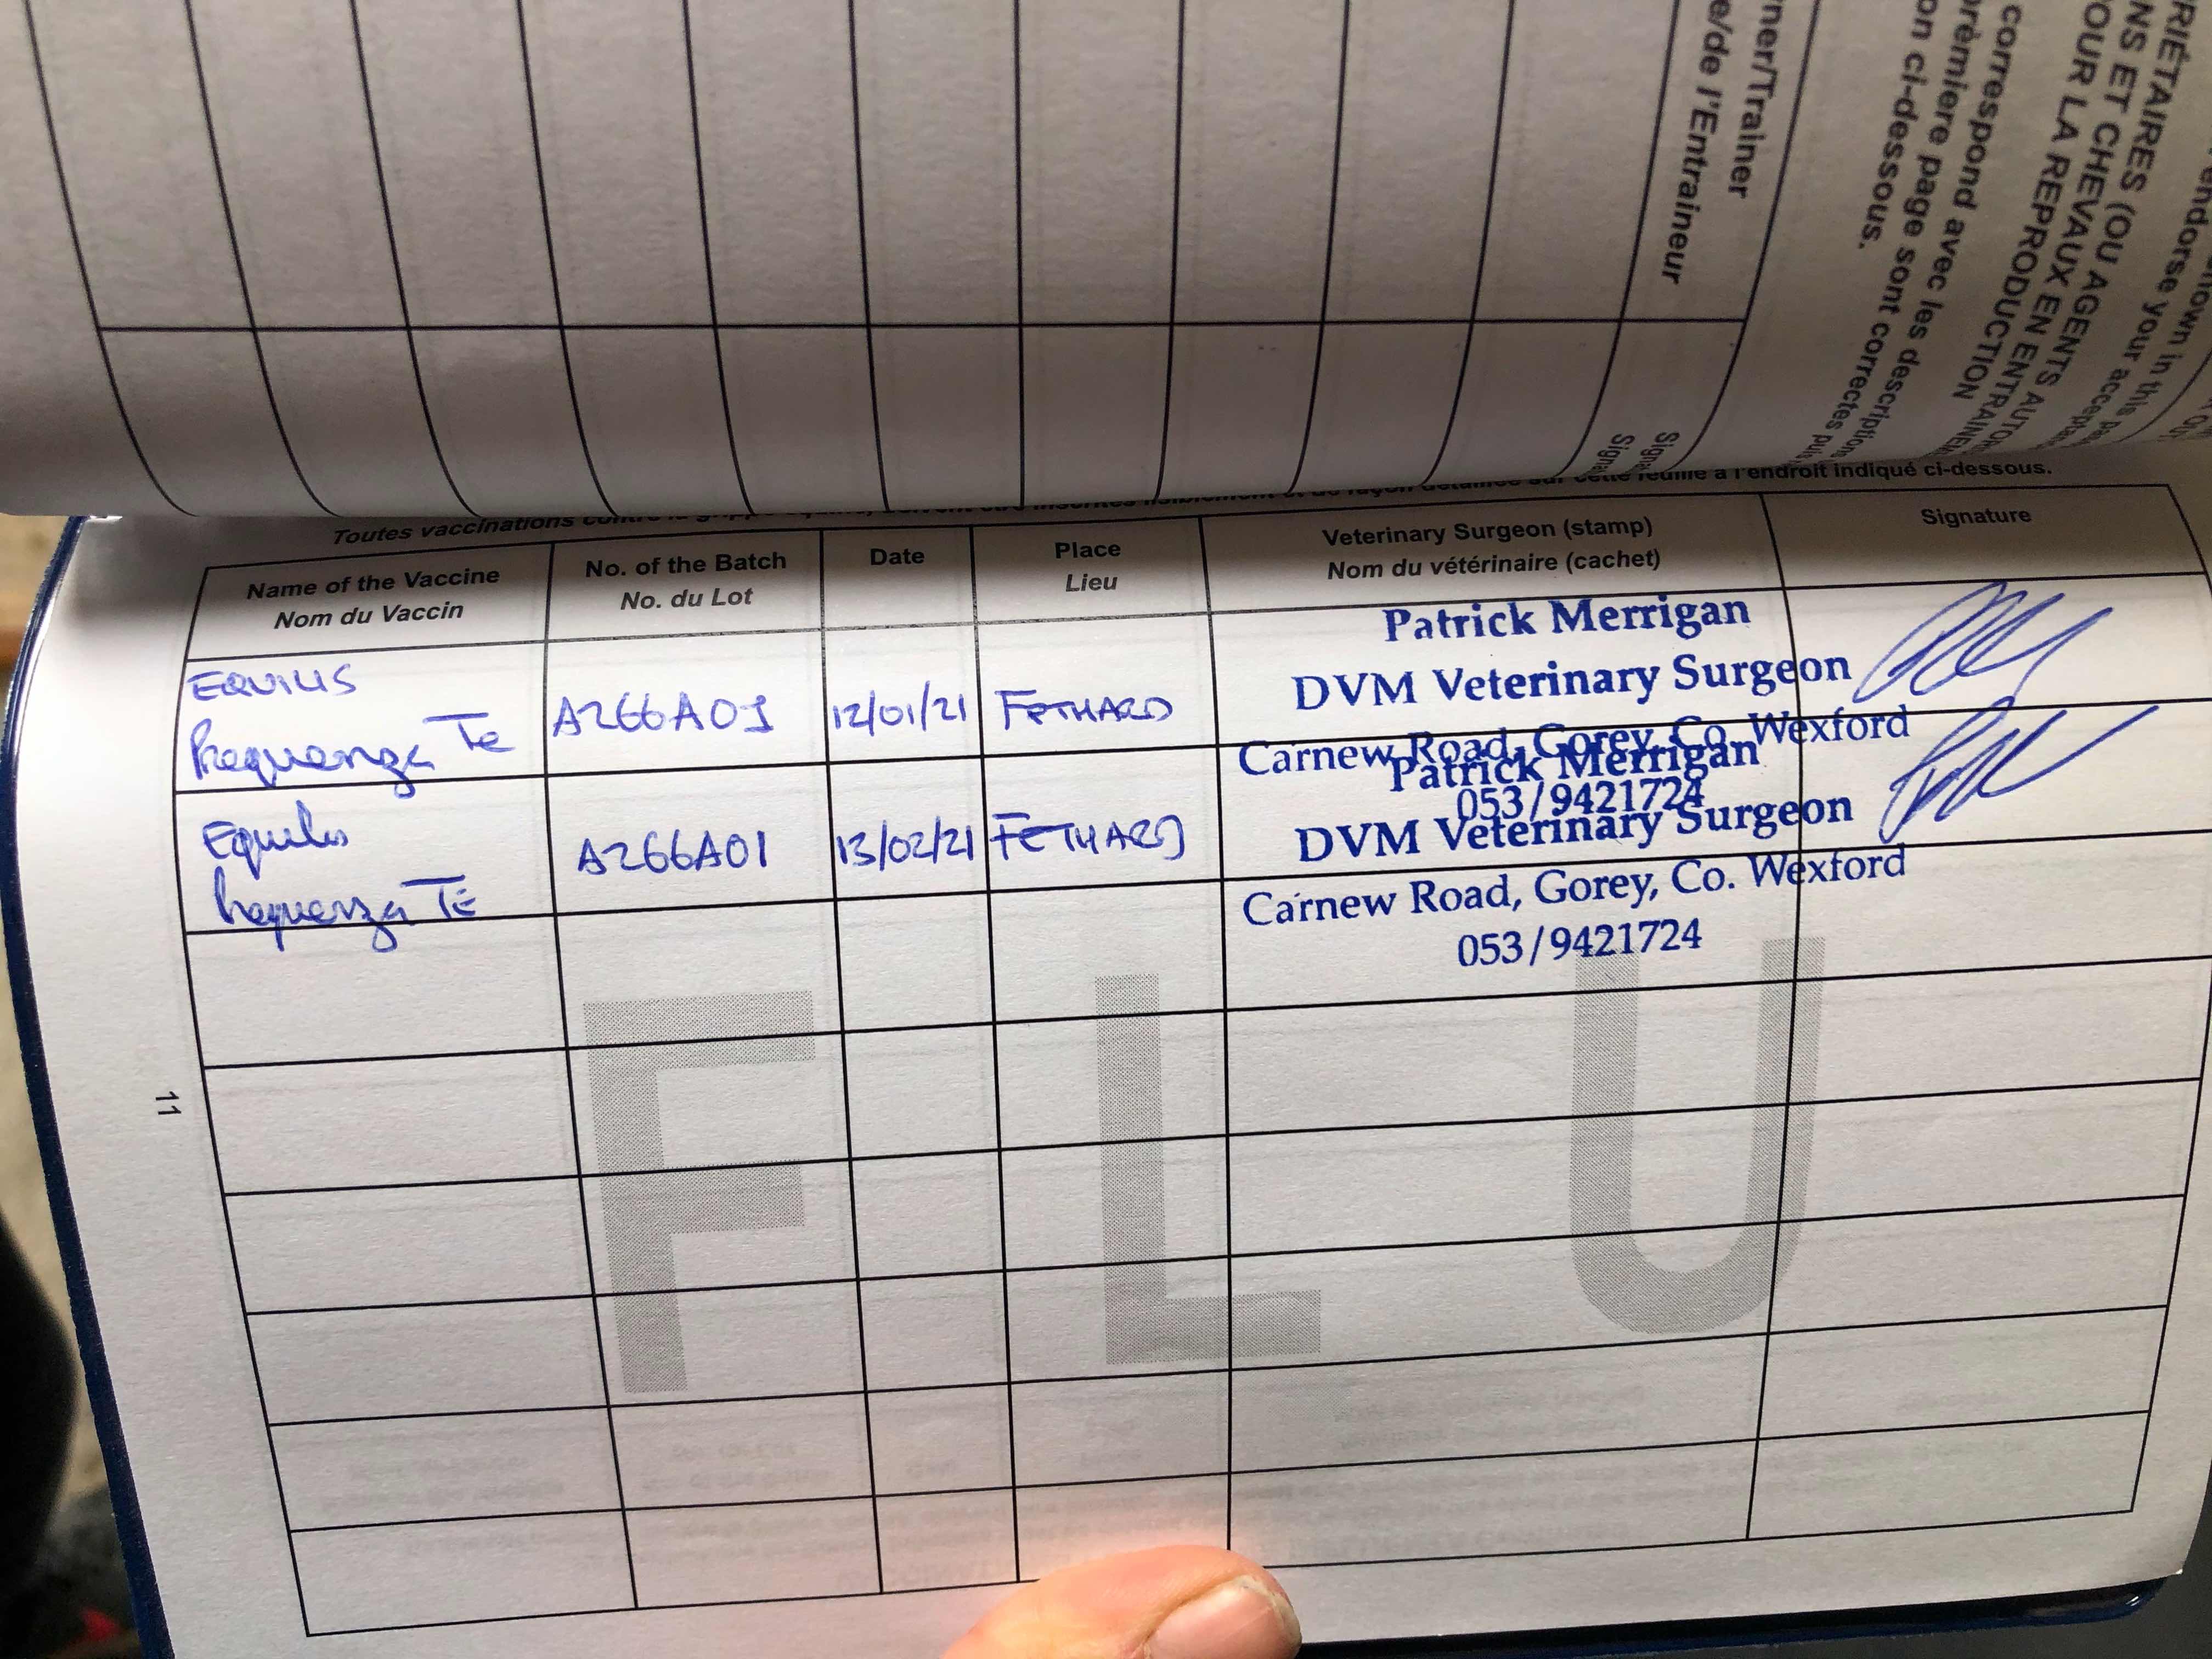 ner/Trainer
e/de l'Entraineur
RIÉTAIRES (OU AGENTS AUTOR
NS ET CHEVAUX EN ENTRAINEM
OUR LA REPRODUCTION
correspond avec les description
première page sont correctes puis
on ci-dessous.
endorse your accepta
shown in this pa
Signa
Signa
Toutes vaccinations feuille à l'endroit indiqué ci-dessous.
Name of the Vaccine
Nom du Vaccin
No. of the Batch
No. du Lot
Date
Place
Lieu
Veterinary Surgeon (stamp)
Nom du vétérinaire (cachet)
Signature
EQUILIS
Prequenza Te
A266A01
12/01/21
FETHARD
Patrick Merrigan
DVM Veterinary Surgeon
Carnew Road, Gorey, Co. Wexford
053/9421724
Equilis
Prequenza TE
A266A01
13/02/21
FETHARD
Patrick Merrigan
DVM Veterinary Surgeon
Carnew Road, Gorey, Co. Wexford
053/9421724
FLU
11